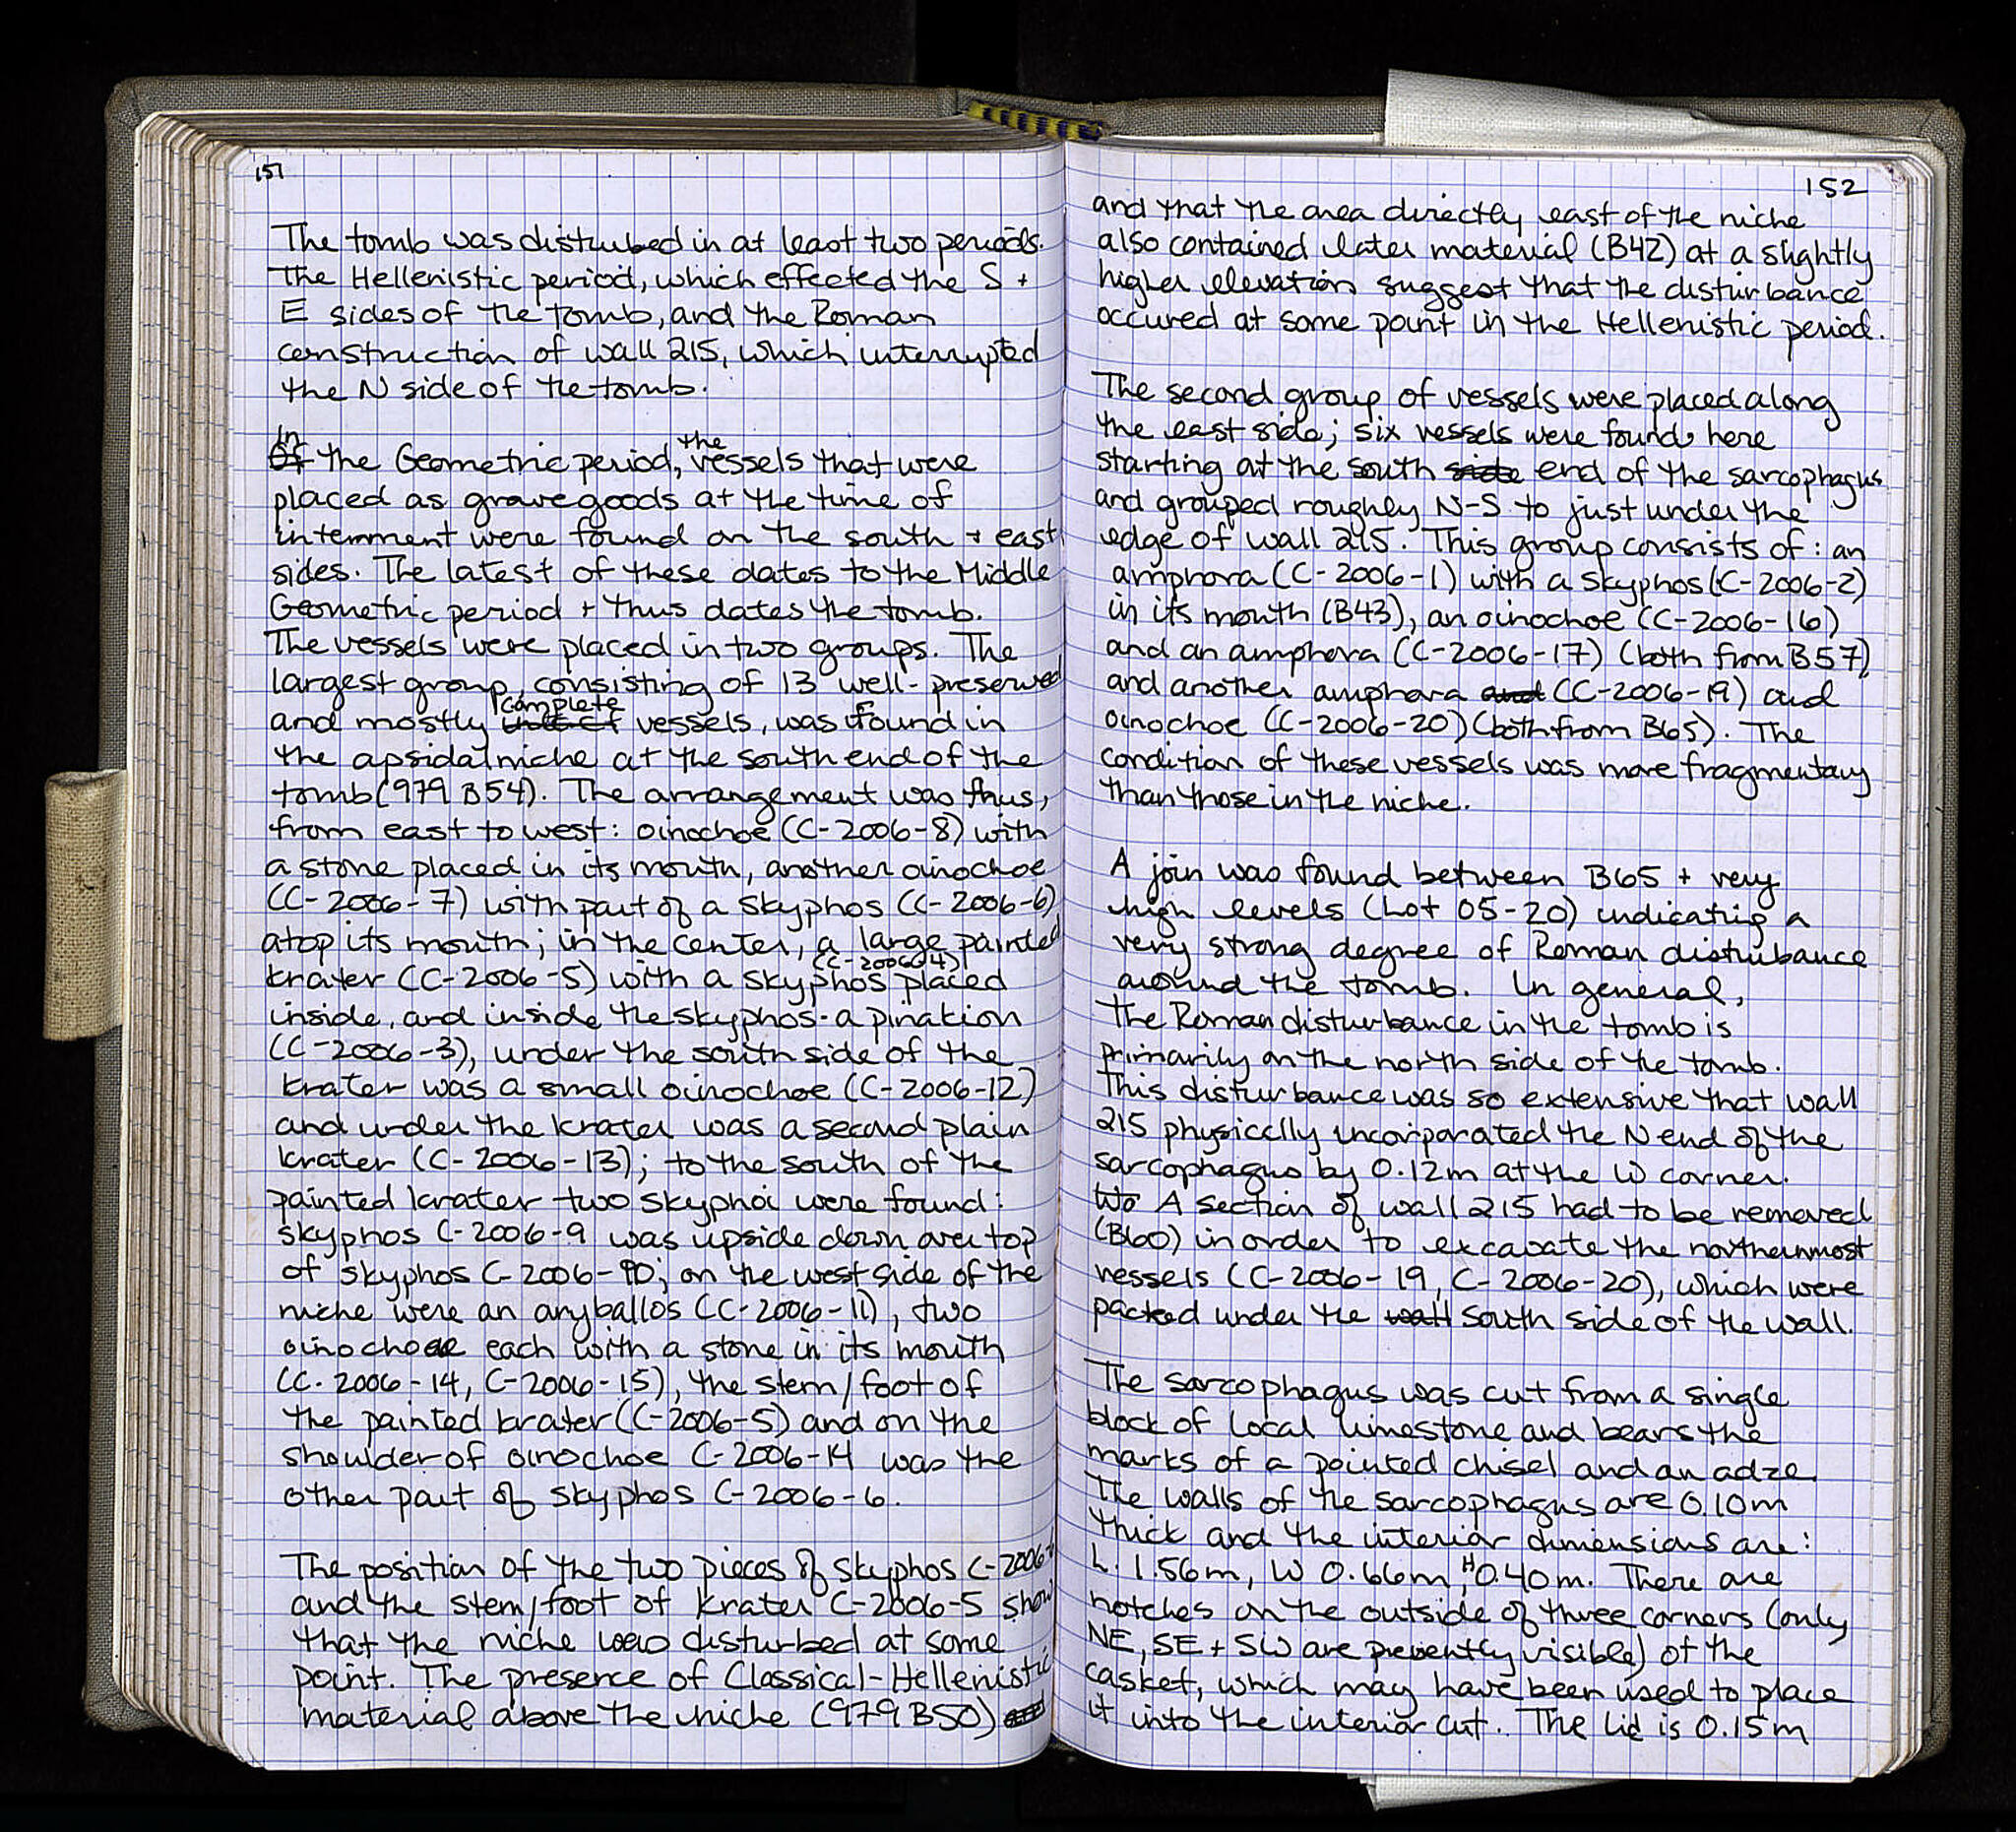 151
The tomb was disturbed in at least two periods.
The Hellenistic period, which effected the S +
E sides of the tomb, and the Roman
construction of wall 215, which interrupted
the N side of the tomb.
In
Of the Geometric period, the vessels that were
placed as grave goods at the time of
internment were found on the south + east
sides. The latest of these dates to the Middle
Geometric period + thus dates the tomb.
The vessels were placed in two groups. The
largest group, consisting of 13 well-preserved
and mostly complete vessels, was found in
the apsidal niche at the south end of the
tomb (979 B54). The arrangement was thus,
from east to west: oinochoe (C-2006-8) with
a stone placed in its mouth, another oinochoe
(C-2006-7) with part of a skyphos (C-2006-6)
atop its mouth; in the center, a large painted
krater (C-2006-5) with a skyphos (C-2006-4) placed
inside, and inside the skyphos - a pinakion
(C-2006-3), under the south side of the
krater was a small oinochoe (C-2006-12)
and under the krater was a second plain
krater (C-2006-13); to the south of the
painted krater two skyphoi were found:
skyphos C-2006-9 was upside down over top
of skyphos C-2006-10; on the west side of the
niche were an aryballos (C-2006-11), two
oinochoae each with a stone in its mouth
(C-2006-14, C-2006-15), the stem/foot of
the painted krater (C-2006-5) and on the
shoulder of oinochoe C-2006-14 was the
other part of skyphos C-2006-6.
The position of the two pieces of skyphos C-2006-
and the stem/foot of krater C-2006-5 show
that the niche was disturbed at some
point. The presence of Classical-Hellenistic
material above the niche (979 B50)
152
and that the area directly east of the niche
also contained later material (B42) at a slightly
higher elevation suggest that the disturbance
occured at some point in the Hellenistic period.
The second group of vessels were placed along
the east side; six vessels were found here
starting at the south side end of the sarcophagus
and grouped roughly N-S to just under the
edge of wall 215. This group consists of: an
amphora (C-2006-1) with a skyphos (C-2006-2)
in its mouth (B43), an oinochoe (C-2006-16)
and an amphora (C-2006-17) (both from B57)
and another amphora and (C-2006-19) and
oinochoe (C-2006-20) (both from B65). The
condition of these vessels was more fragmentary
than those in the niche.
A join was found between B65 + very
high levels (Lot 05-20) indicating a
very strong degree of Roman disturbance
around the tomb. In general,
the Roman disturbance in the tomb is
primarily on the north side of the tomb.
This disturbance was so extensive that wall
215 physically incorporated the N end of the
sarcophagus by 0.12m at the W corner.
Wo A section of wall 215 had to be removed
(B60) in order to excavate the northernmost
vessels (C-2006-19, C-2006-20), which were
packed under the wall south side of the wall.
The sarcophagus was cut from a single
block of local limestone and bears the
marks of a pointed chisel and an adze.
The walls of the sarcophagus are 0.10m
thick and the interior dimensions are:
L. 1.56m, W 0.66m, H 0.40m. There are
notches on the outside of three corners (only
NE, SE + SW are presently visible) of the
casket, which may have been used to place
it into the interior cut. The lid is 0.15m